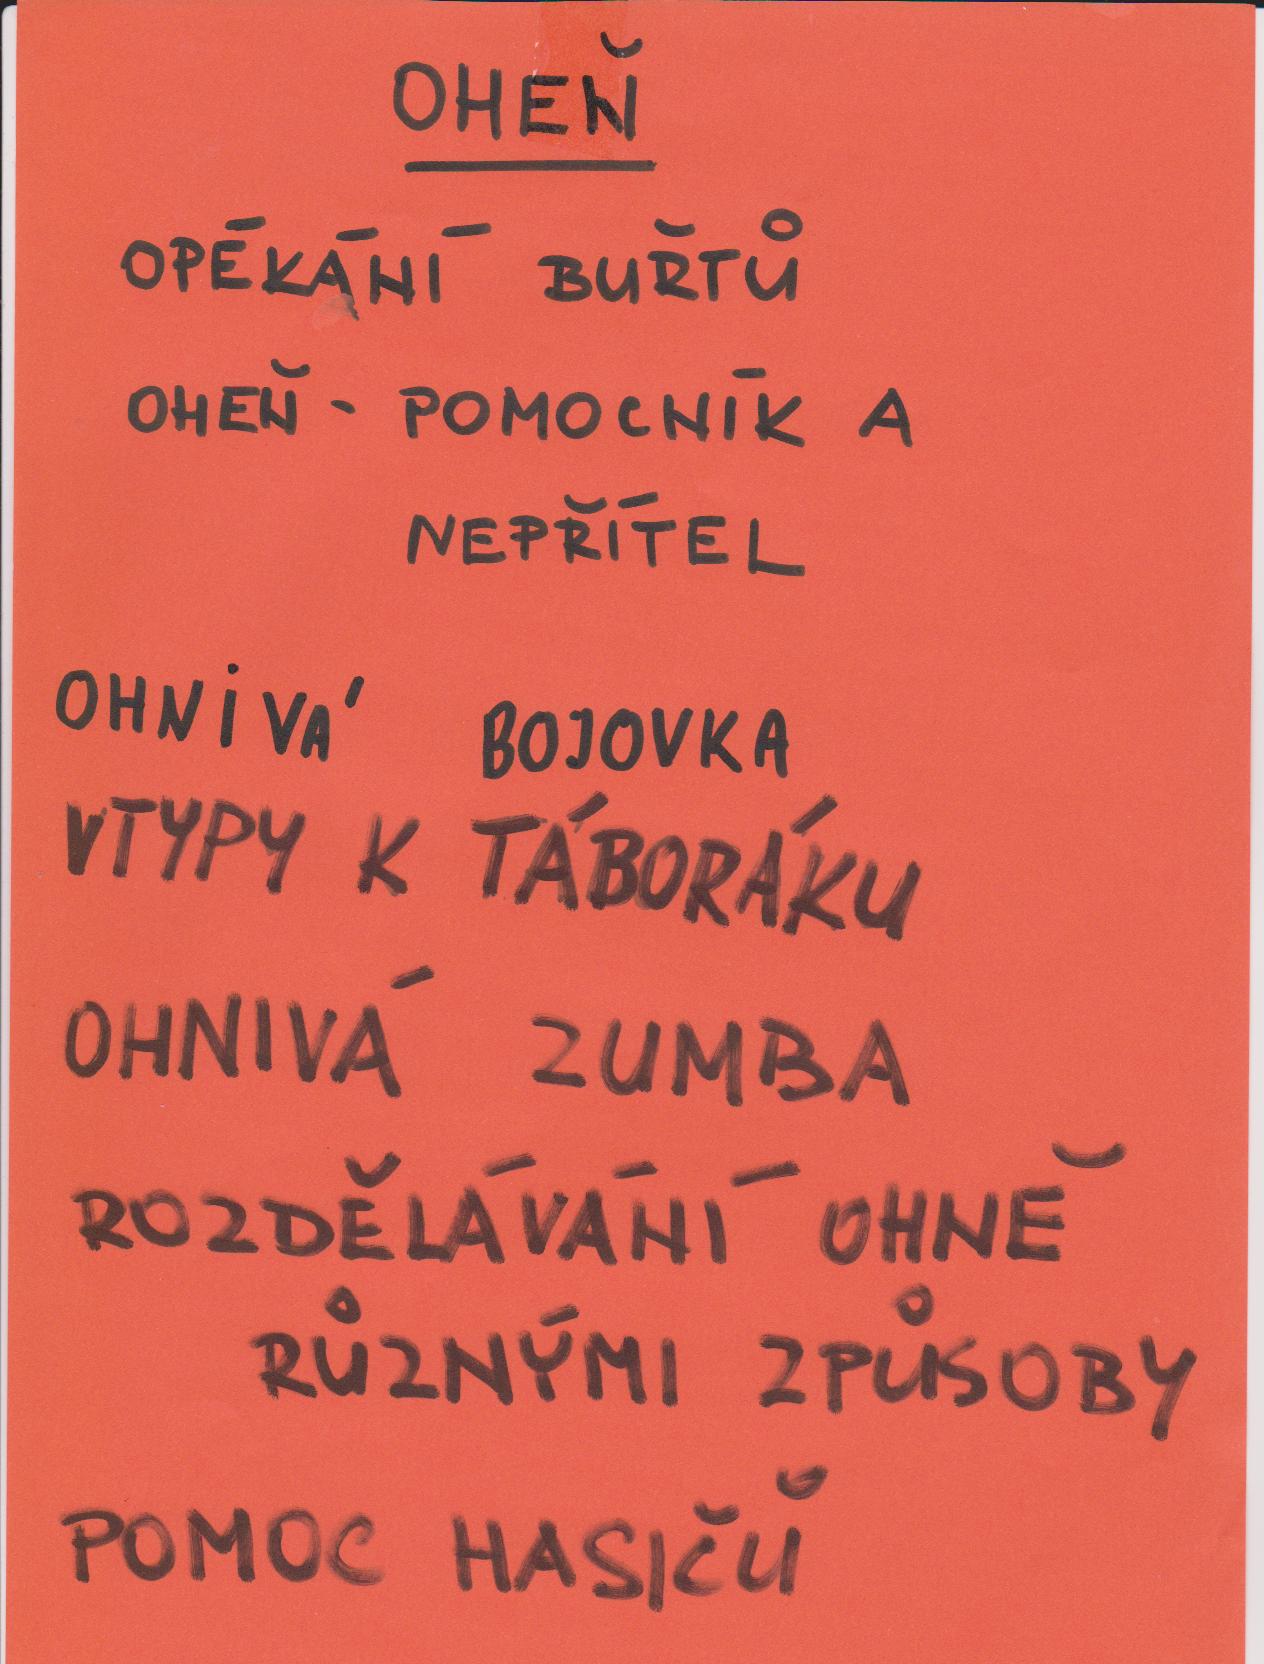 OHEŇ
OPÉKÁNÍ BUŘTŮ
OHEŇ - POMOCNÍK A
NEPŘÍTEL
OHNIVÁ BOJOVKA
VTYPY K TÁBORÁKU
OHNIVÁ ZUMBA
ROZDĚLÁVÁNÍ OHNĚ
RŮZNÝMI ZPŮSOBY
POMOC HASIČŮ